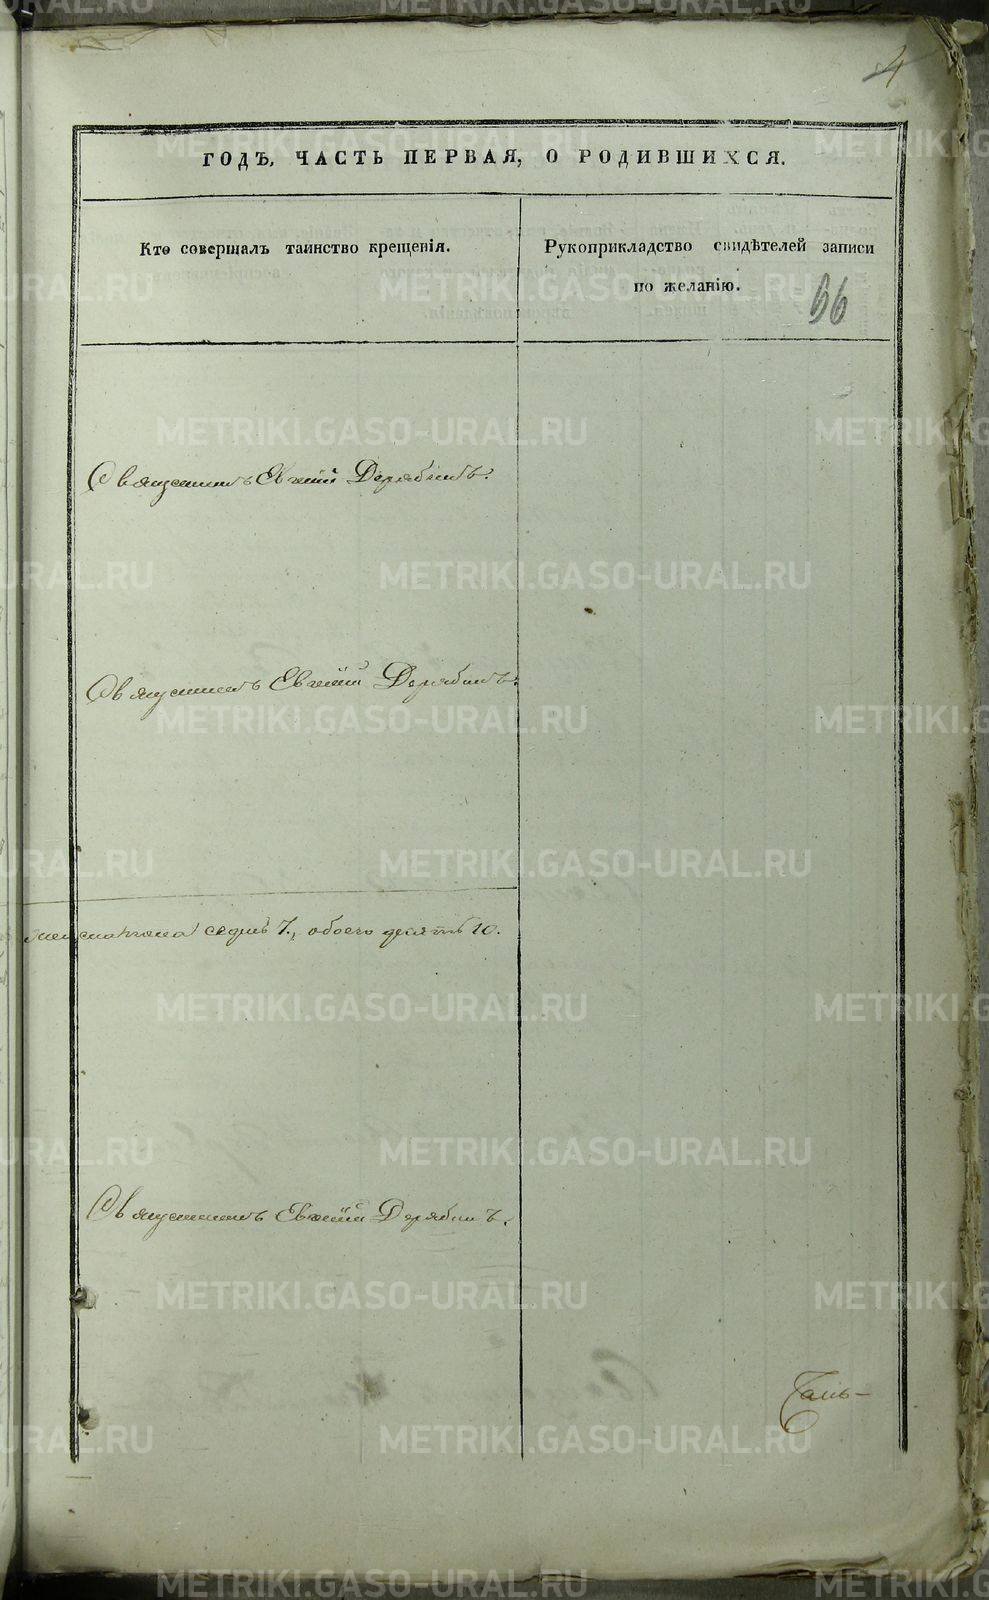 4
ГОДЪ, ЧАСТЬ ПЕРВАЯ, О РОДИВШИХСЯ.
Кто совершалъ таинство крещенія.
Рукоприкладство свидѣтелей записи
по желанію.
66
Священникъ Евгеній Дерябинъ.
Священникъ Евгеній Дерябинъ.
женска пола седмь 7., обоего десять 10.
Священникъ Евгеній Дерябинъ.
METRIKI.GASO-URAL.RU